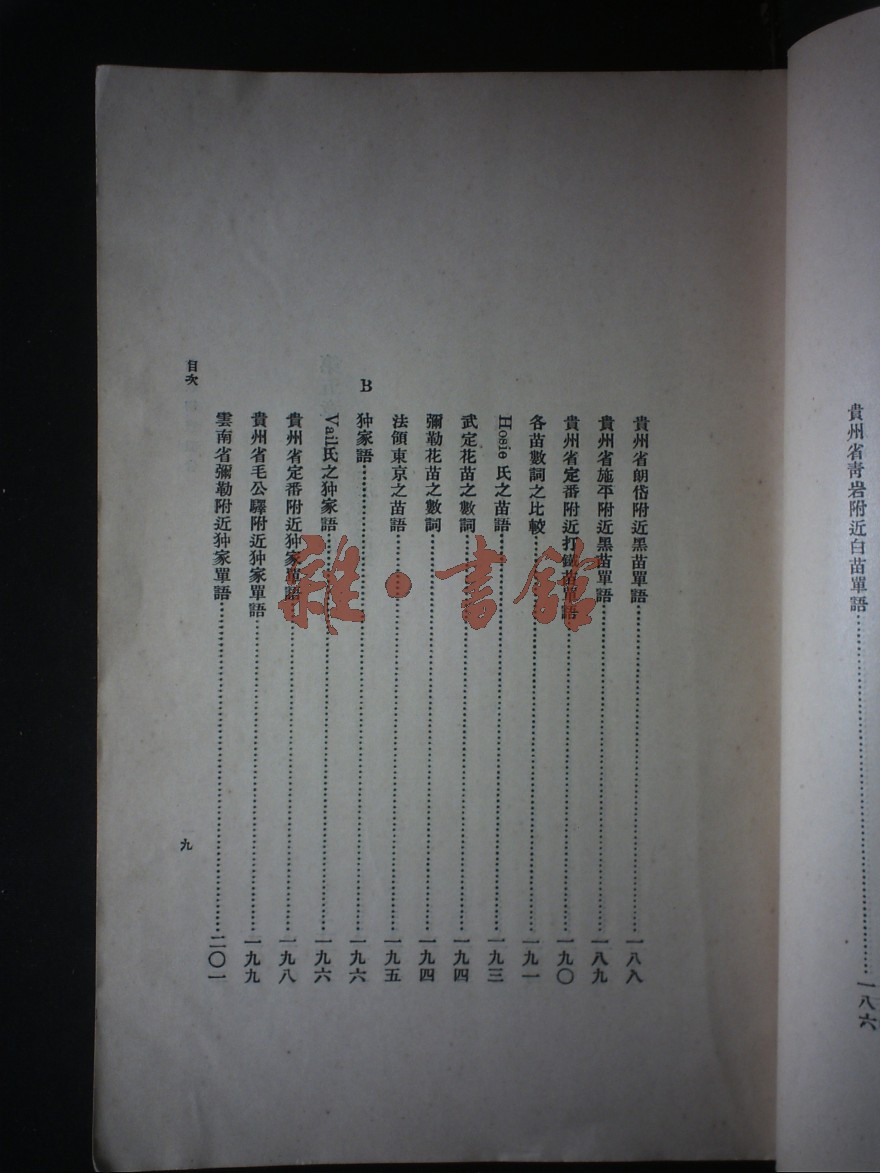 貴州省靑岩附近白苗單語……一八六
貴州省朗岱附近黑苗單語……一八八
貴州省施平附近黑苗單語……一八九
貴州省定番附近打鐵苗單語……一九〇
各苗數詞之比較……一九一
Hosie氏之苗語……一九三
武定花苗之數詞……一九四
彌勒花苗之數詞……一九四
法領東京之苗語……一九五
B 狆家語……一九六
Vail氏之狆家語……一九六
貴州省定番附近狆家單語……一九八
貴州省毛公驛附近狆家單語……一九九
雲南省彌勒附近狆家單語……二〇一
目次
九
雜·書館